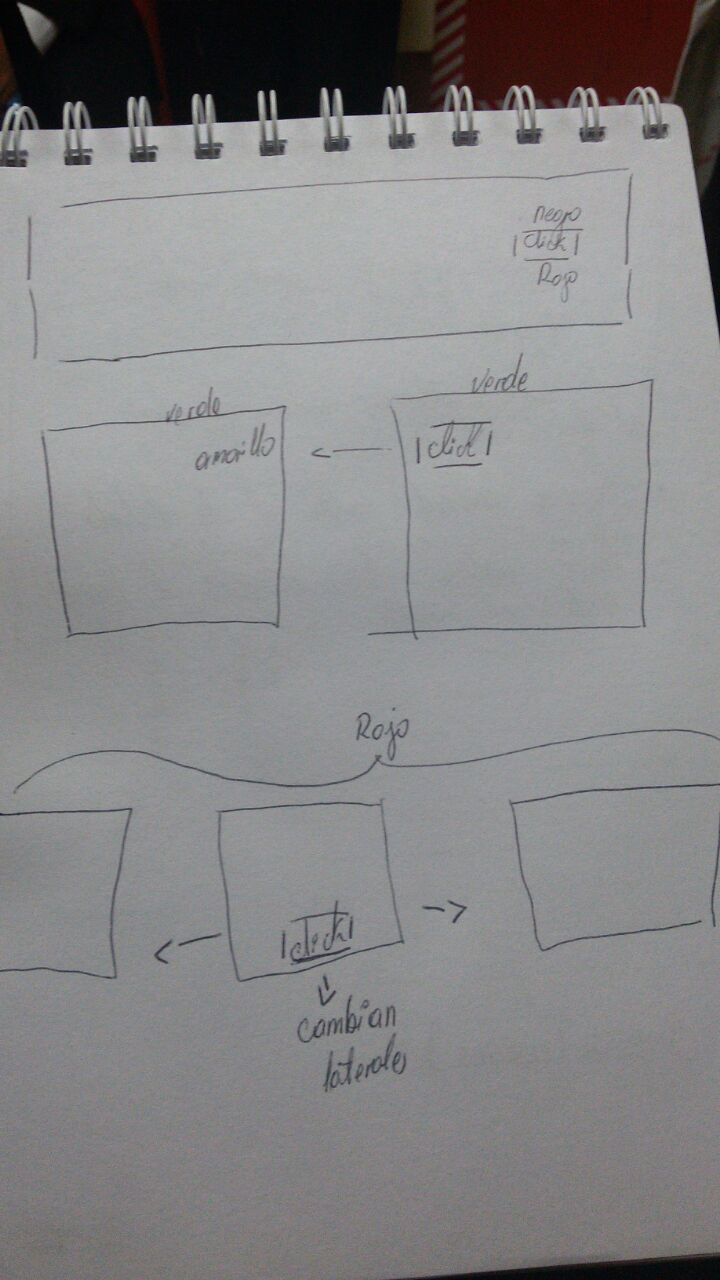 negro
click
Rojo
verde
verde
amarillo
click
Rojo
click
cambian
laterales